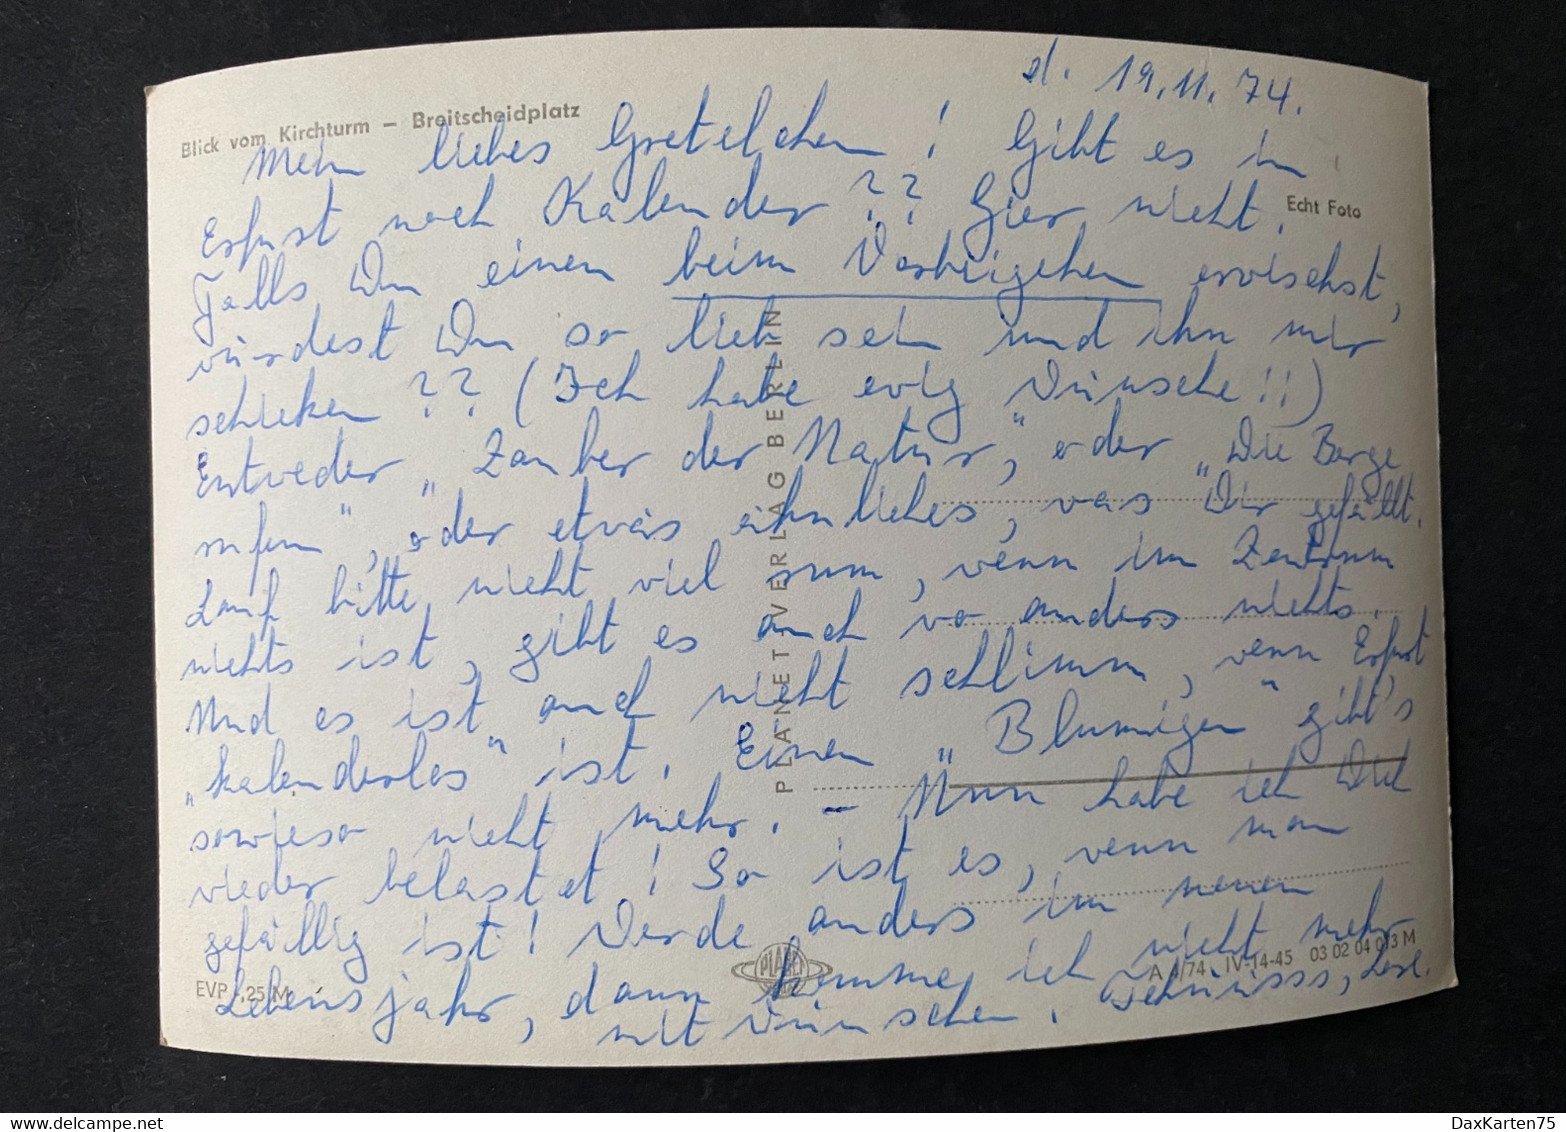 d. 19.11.74.
Blick vom Kirchturm – Breitscheidplatz
Mein liebes Gretelchen! Gibt es in
Echt Foto
Erfurt noch Kalender?? Hier nicht.
Falls Du einen beim Vorbeigehen erwischst,
würdest Du so lieb sein und ihn mir
schicken?? (Ich habe ewig Wünsche!!)
Entweder „Zauber der Natur“, oder „Die Berge
rufen“, oder etwas ähnliches, was Dir gefällt.
Lauf bitte nicht viel rum, wenn im Zentrum
nichts ist, gibt es auch wo anders nichts.
Und es ist auch nicht schlimm, wenn Erfurt
„kalenderlos“ ist. Einen „Blumigen“ gibt's
sowieso nicht mehr. – Nun habe ich Dich
wieder belastet! So ist es, wenn man
gefällig ist! Werde anders im neuen
Lebensjahr, dann komme ich nicht mehr
mit Wünschen. Lose.
PLANET-VERLAG BERLIN
PLANET
EVP ,25 M
A 4/74 IV-14-45 03 02 04 013 M
DaxKarten75